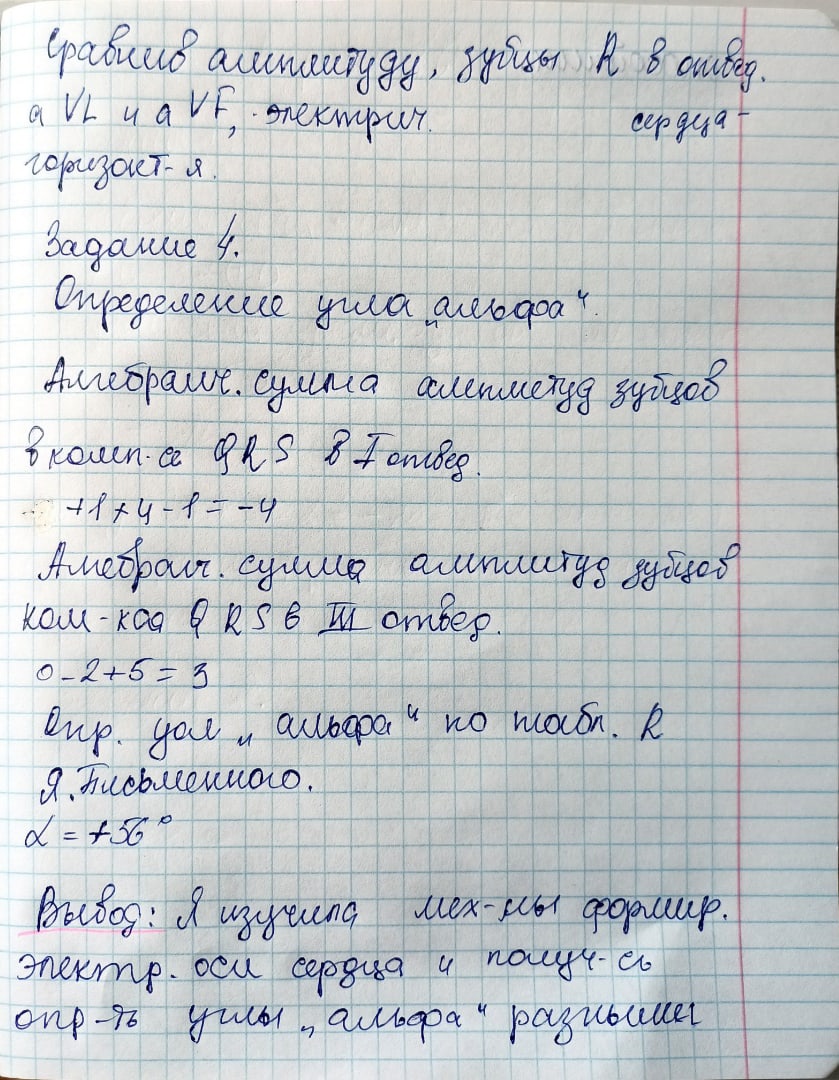 Сравнив амплитуду, зубцы R в отвед.
а VL и а VF, электрич. сердца -
горизонт-я.
Задание 4.
Определение угла „альфа“.
Алгебраич. сумма амплитуд зубцов
в комп-се QRS в I отвед.
+1+4-1=-4
Алгебраич. сумма амплитуд зубцов
ком-кса QRS в III отвед.
0-2+5=3
Опр. угол „альфа“ по табл. R
Я. Письменного.
α = +56°
Вывод: Я изучила мех-мы формир.
электр. оси сердца и получ-сь
опр-ть углы „альфа“ разными